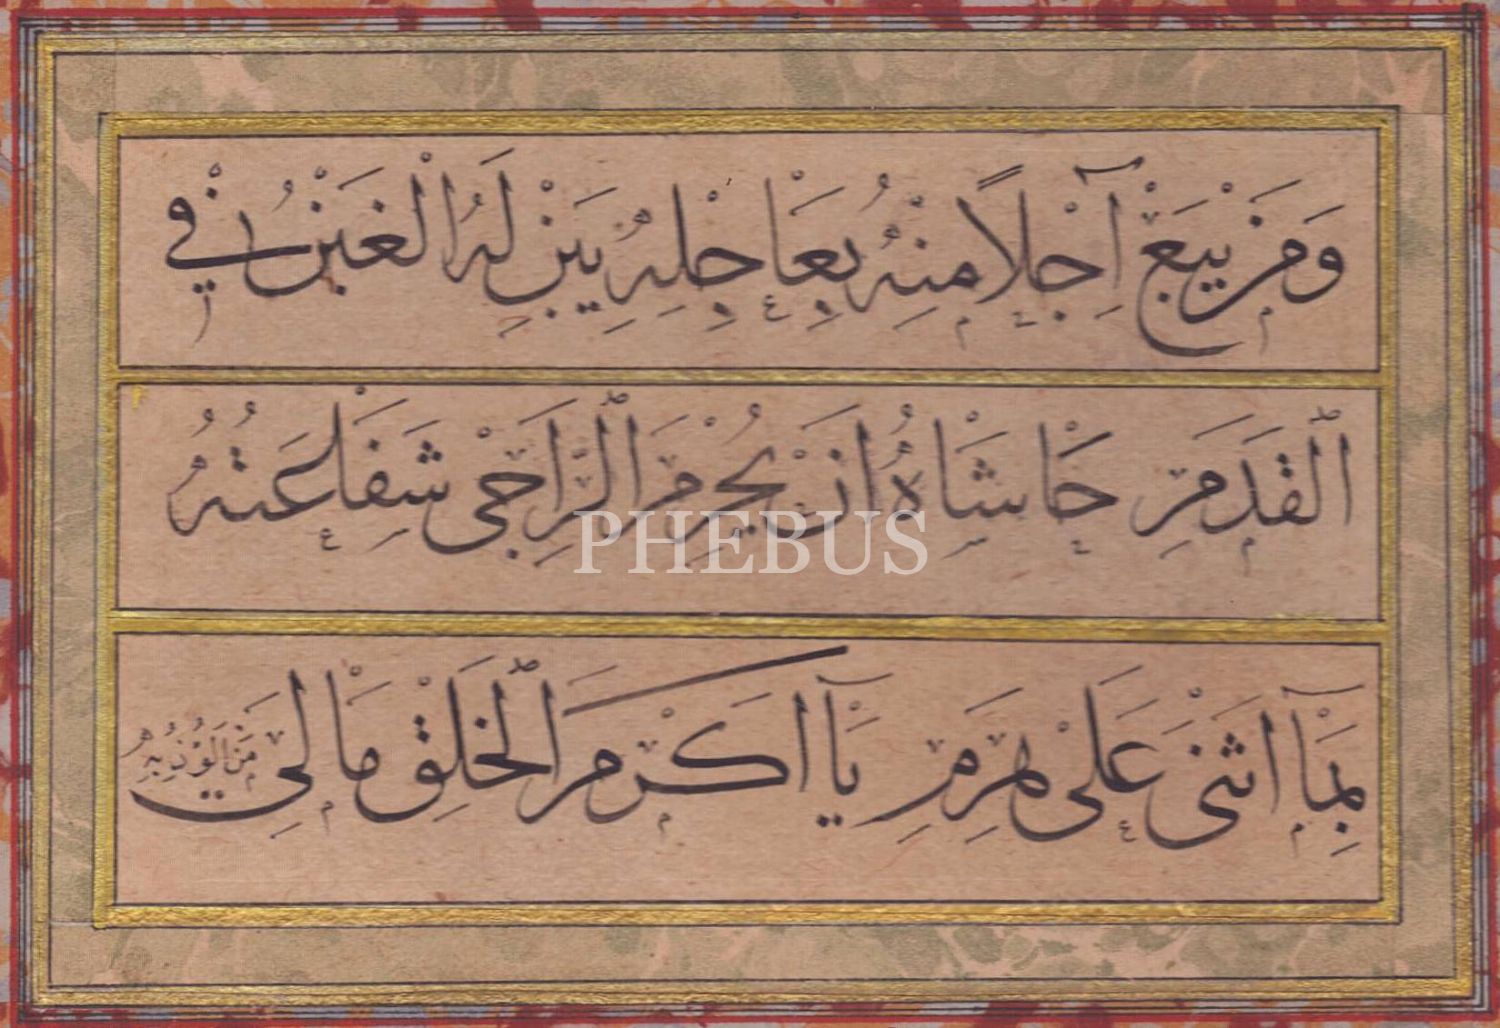 وَمَنْ يَبِعْ آجِلًا مِنْهُ بِعَاجِلِهِ يَبِنْ لَهُ الْغَبْنُ فِي
الْقَدَمِ حَاشَاهُ اَنْ يُحْرِمَ الرَّاجِي شَفَاعَتُهُ
بِمَآ اَثْنَى عَلَى هَرِمِ يَآ اَكْرَمَ الْخَلْقِ مَا لِي مَنْ اَلُوذُ بِهِ
PHEBUS